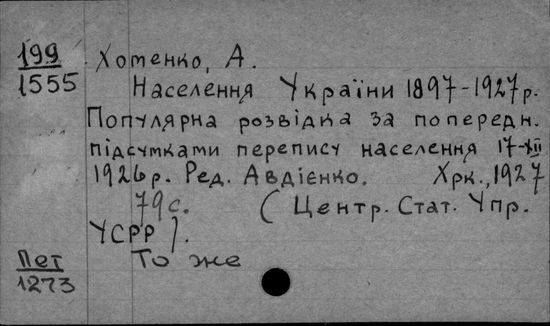 199 Хотенко, А.
1555 Населення України 1897-1927р.
Популярна розвідка за попередн.
підсутками перепису населення 17-XII
1926р. Ред. Авдієнко. Хрк., 1927
79с. (Центр. Стат. Упр.
УСРР).
Пет То же
1273